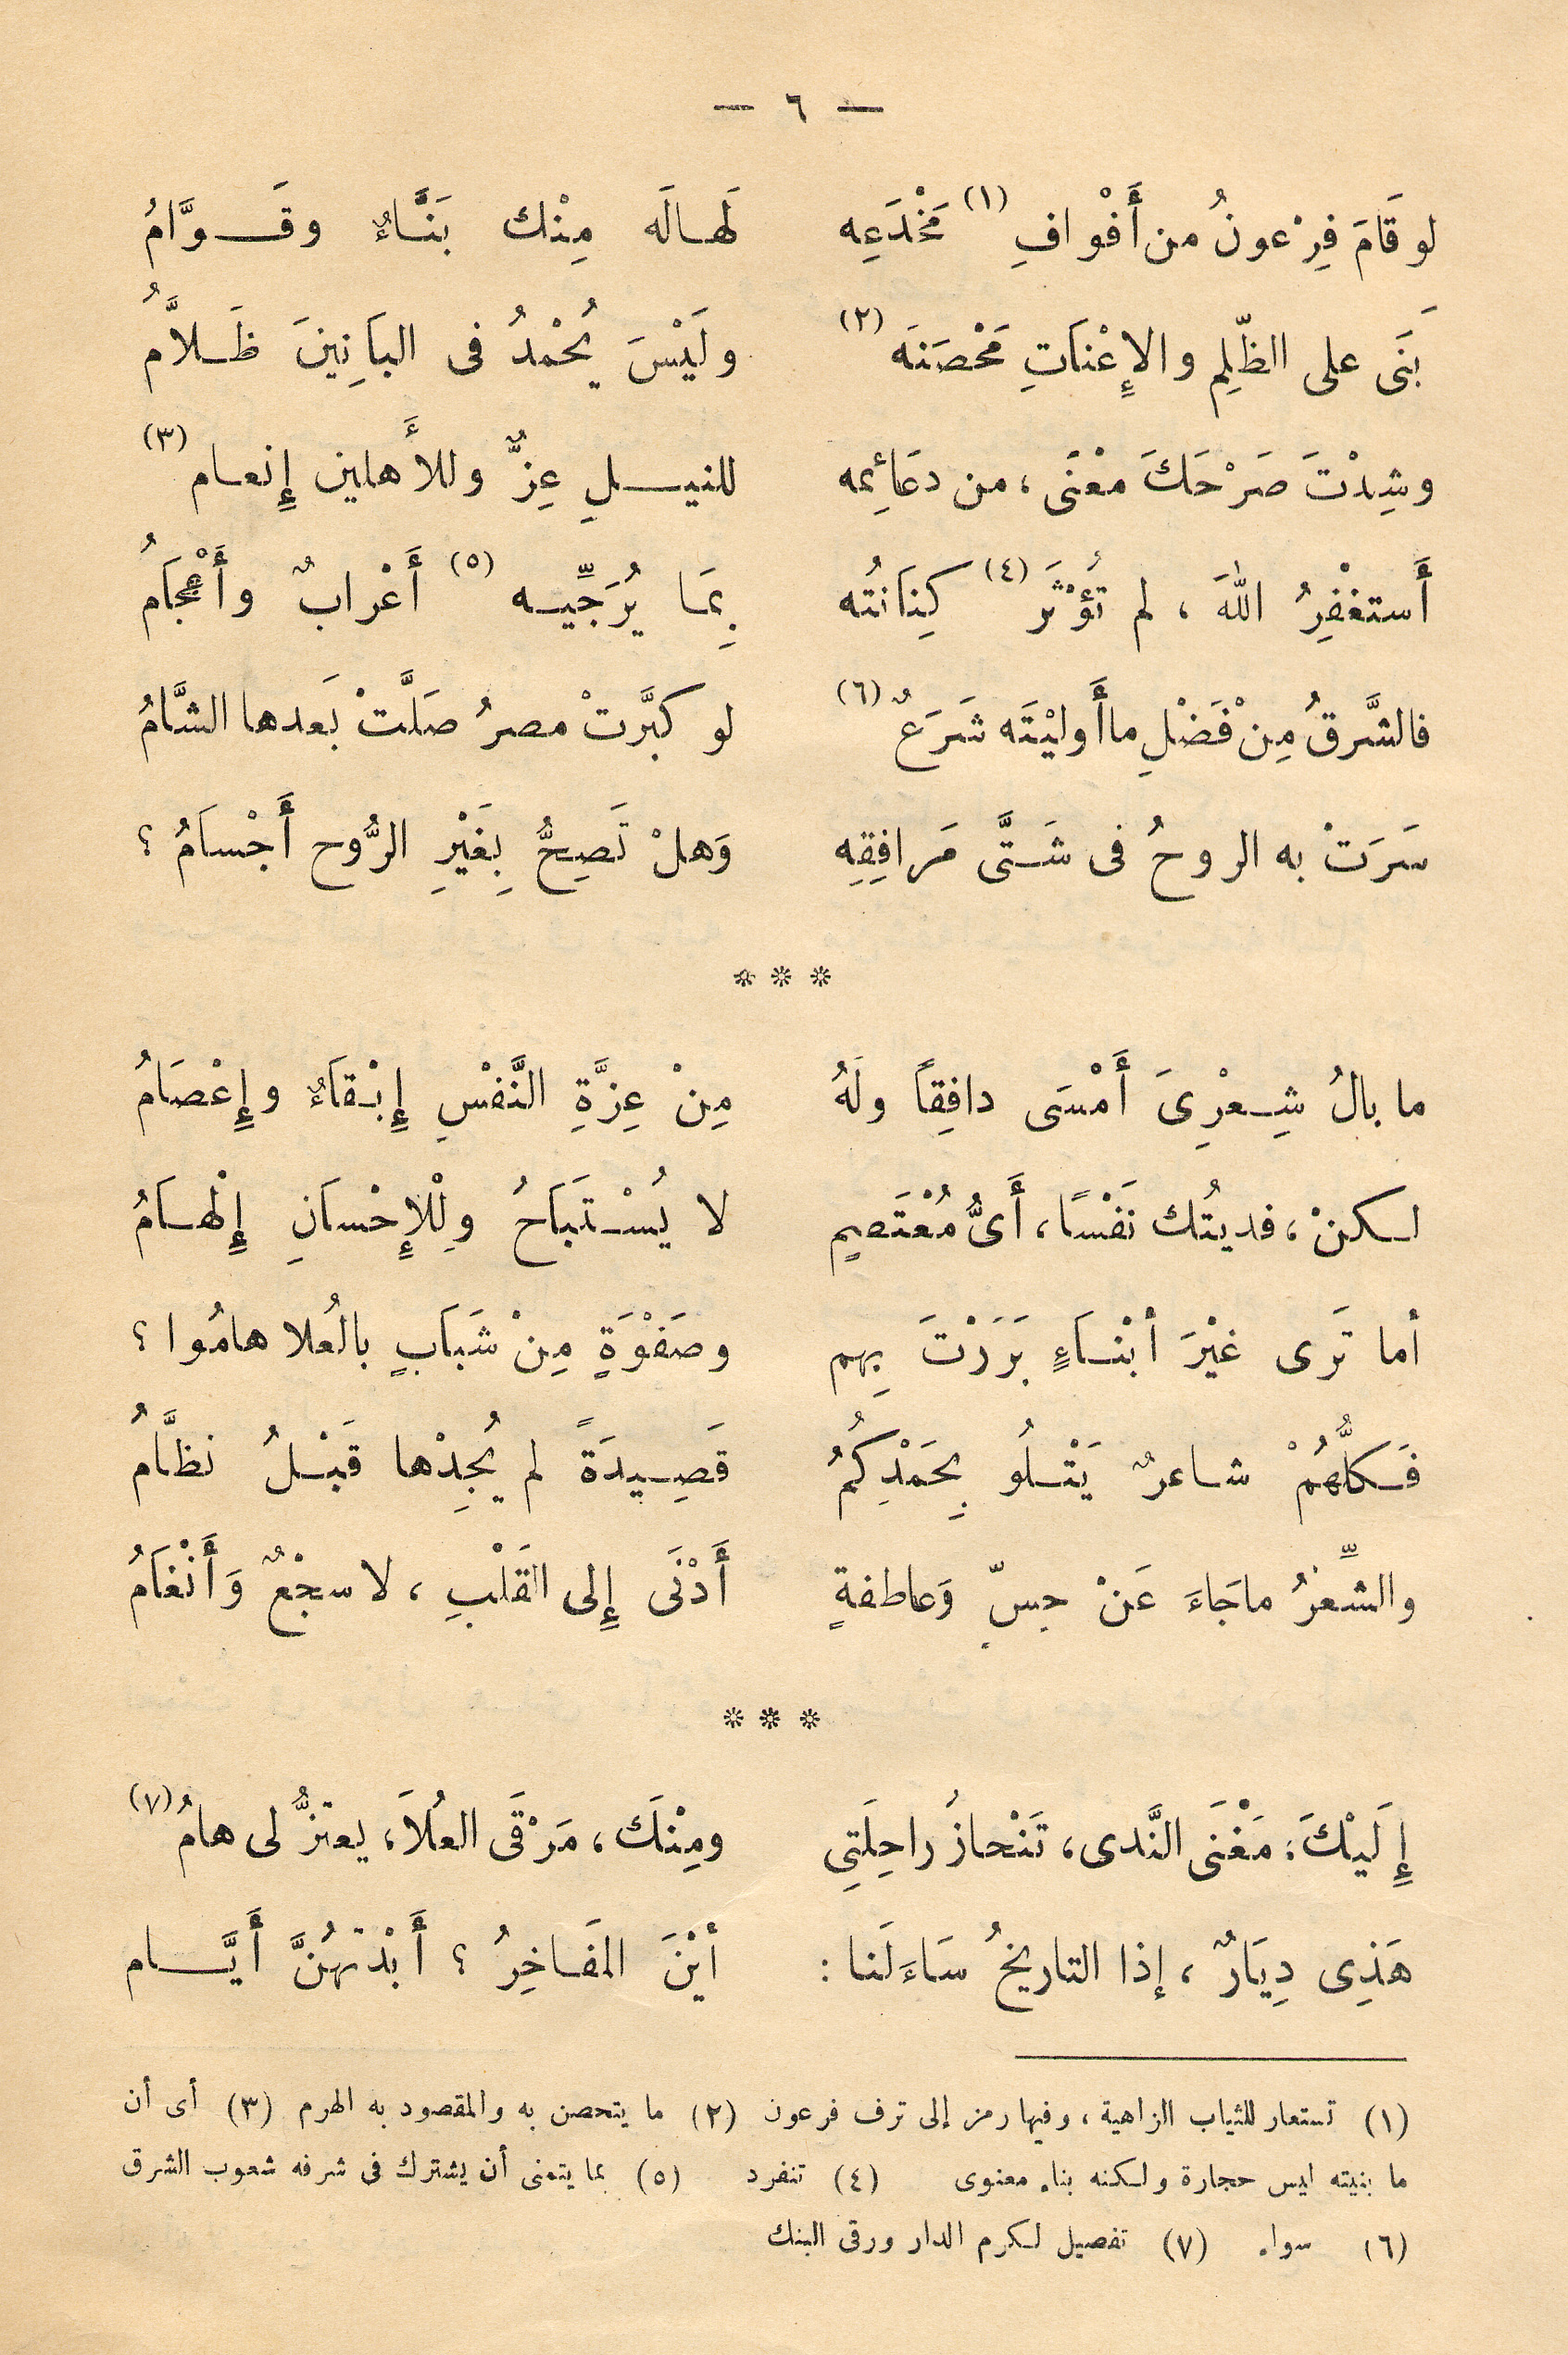 — ٦ —
لو قَامَ فِرْعونُ من أَفْوافِ (١) مَخْدَعِه لَهالَه مِنْك بَنَّاءٌ وقَوَّامُ
بَنَى على الظّلِم والإِعْنَاتِ مَحْصَنَه (٢) ولَيْسَ يُحْمْدُ فى البَانِينَ ظَلاَّمُ
وشِدْتَ صَرْحَكَ مَعْنًى ، من دعَائِمه للنيلِ عِزٌّ وللأَهلين إِنعام (٣)
أَستغْفِرُ اللهَ ، لم تُؤْثَر (٤) كِنَانتُه بِمَا يُرَجِّيه (٥) أَعْرابٌ وأَعْجَامُ
فالشَّرقُ مِنْ فَضْلِ ما أَوليْتَه شَرَعٌ (٦) لو كبَّرتْ مصرُ صَلَّتْ بَعدها الشَّامُ
سَرَتْ به الروحُ فى شَتَّى مَرافِقِه وَهلْ تَصِحُّ بِغَيْرِ الرُّوح أَجْسامُ ؟
* * *
ما بالُ شِعْرِىَ أَمْسَى دافِقِاً ولَهُ مِنْ عِزَّةِ النَّفْسِ إِبْقاءٌ وإِعْصَامُ
لكنْ ، فديتُك نَفْسًا ، أَىُّ مُعْتَصِمٍ لا يُسْتبَاحُ ولِلْإِحْسانِ إِلْهامُ
أما تَرى غيْرَ أبْناءٍ بَرَرْتَ بِهم وصَفْوَةٍ مِنْ شَبَابٍ بالعُلا هامُوا ؟
فَكلُّهُمْ شاعرٌ يَتْلُو بِحَمْدِكُمُ قَصِيدَةً لم يُجِدْها قَبْلُ نظَّامُ
والشِّعْرُ ماجَاءَ عَنْ حِسّ وَعاطفةٍ أَدْنَى إِلى القَلْبِ ، لا سجْعٌ وَأَنْغَامُ
* * *
إِلَيْكَ : مَغْنَى النَّدى ، تَنْحازُ راحِلَتِي ومِنْكَ ، مَرْقَى العُلاَ ، يعتزُّ لى هامُ (٧)
هَذِى دِيَارٌ ، إذا التاريخُ سَاءَلَنا : أيْنَ المفَاخِرُ ؟ أَبْدتهُنَّ أَيَّام
(١) تستعار للثياب الزاهية ، وفيها رمز إلى ترف فرعون (٢) ما يتحصن به والمقصود به الهرم (٣) أى أن
ما بنيته ليس حجارة ولكنه بناء معنوى (٤) تنفرد (٥) بما يتمنى أن يشترك فى شرفه شعوب الشرق
(٦) سواء (٧) تفصيل لكرم الدار ورقى البنك